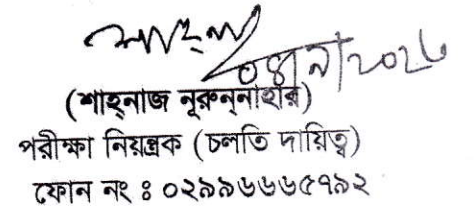 শাহনাজ
(শাহ্‌নাজ নূরুন্‌নাহার)
পরীক্ষা নিয়ন্ত্রক (চলতি দায়িত্ব)
ফোন নং ঃ ০২৯৯৬৬৬৫৭৯২